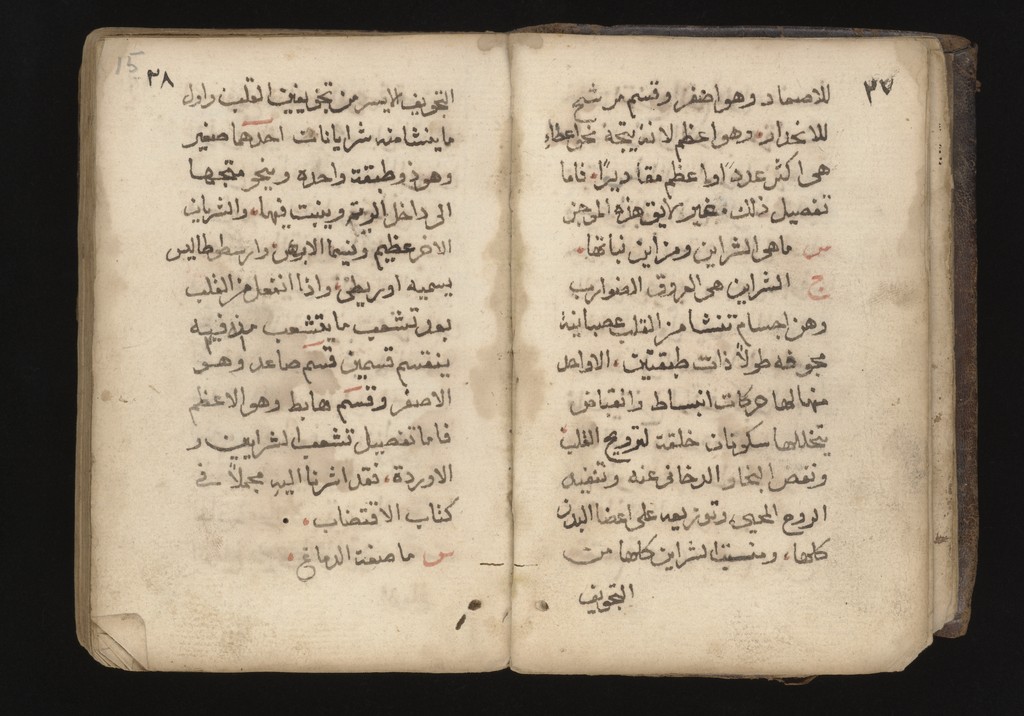 ٣٧
للاصعاد وهو اصغر وقسم مرشح
للانحدار. وهو اعظم لانه يتجه نحو اعضاءِ
هى اكثر عدداً واعظم مقاديراً. فاما
تفصيل ذلك. غير لايق بهذه الموجز
س ما هى الشراين ومن أين نباتها.
ج الشراين هى العروق الضوارب
وهن اجسام تنشا من القلب عصبانية
مجوفه طولاً ذات طبقتين. الاواحد
منها لها حركات انبساط وانقباض
يتخللها سكونات خلقت لترويح القلب
ونفص البخار الدخانى عنه وتنفيذ
الروح المحيى وتوزيعه على اعضا البدن
كلها، ومنبت الشراين كلها من
التجويف
15 ٣٨
التجويف الايسر من تجويفين القلب واول
ما ينشا منه شرايانات احدهما صغير
وهو ذو طبقة واحدة وينحو متجها
الى داخل الرية وينبت فيها، والشريان
الاخر عظيم ويسما الابهر وارسطوطاليس
يسميه اوريطى، واذا انفصل من القلب
بعد تشعب ما يتشعب منه فيه
ينقسم قسمين قسم صاعد وهو
الاصغر وقسم هابط وهو الاعظم
فاما تفصيل تشعب الشرايين و
الاوردة، فقد اشرنا اليه مجملاً فى
كتاب الاقتضاب.
س ما صفت الدماغ.